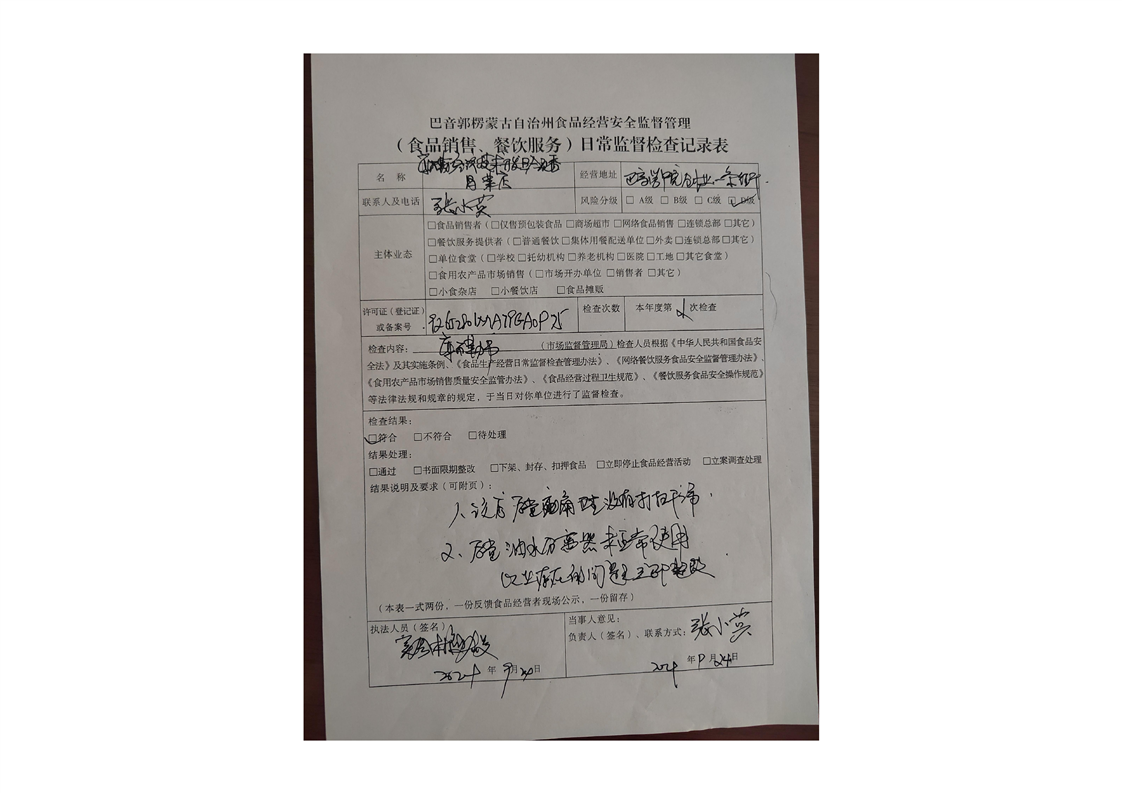 巴音郭楞蒙古自治州食品经营安全监督管理
(食品销售、餐饮服务)日常监督检查记录表
名 称
月荣店
经营地址
联系人及电话 张小英
风险分级 □ A级 □ B级 □ C级 □ D级
主体业态
□食品销售者(□仅售预包装食品 □商场超市 □网络食品销售 □连锁总部 □其它)
□餐饮服务提供者(□普通餐饮 □集体用餐配送单位 □外卖 □连锁总部 □其它)
□单位食堂(□学校 □托幼机构 □养老机构 □医院 □工地 □其它食堂)
□食用农产品市场销售(□市场开办单位 □销售者 □其它)
□小食杂店 □小餐饮店 □食品摊贩
许可证(登记证)
或备案号
检查次数 本年度第 次检查
检查内容: (市场监督管理局)检查人员根据《中华人民共和国食品安
全法》及其实施条例、《食品生产经营日常监督检查管理办法》、《网络餐饮服务食品安全监督管理办法》、
《食用农产品市场销售质量安全监管办法》、《食品经营过程卫生规范》、《餐饮服务食品安全操作规范》
等法律法规和规章的规定,于当日对你单位进行了监督检查。
检查结果:
□符合 □不符合 □待处理
结果处理:
□通过 □书面限期整改 □下架、封存、扣押食品 □立即停止食品经营活动 □立案调查处理
结果说明及要求(可附页):
1、该店后堂 角卫生没有打扫干净.
2、后堂油水分离器未正常使用
以上存在的问题立即整改
(本表一式两份,一份反馈食品经营者现场公示,一份留存)
执法人员(签名)
2024年9月24日
当事人意见:
负责人(签名)、联系方式: 张小英
2024年9月24日